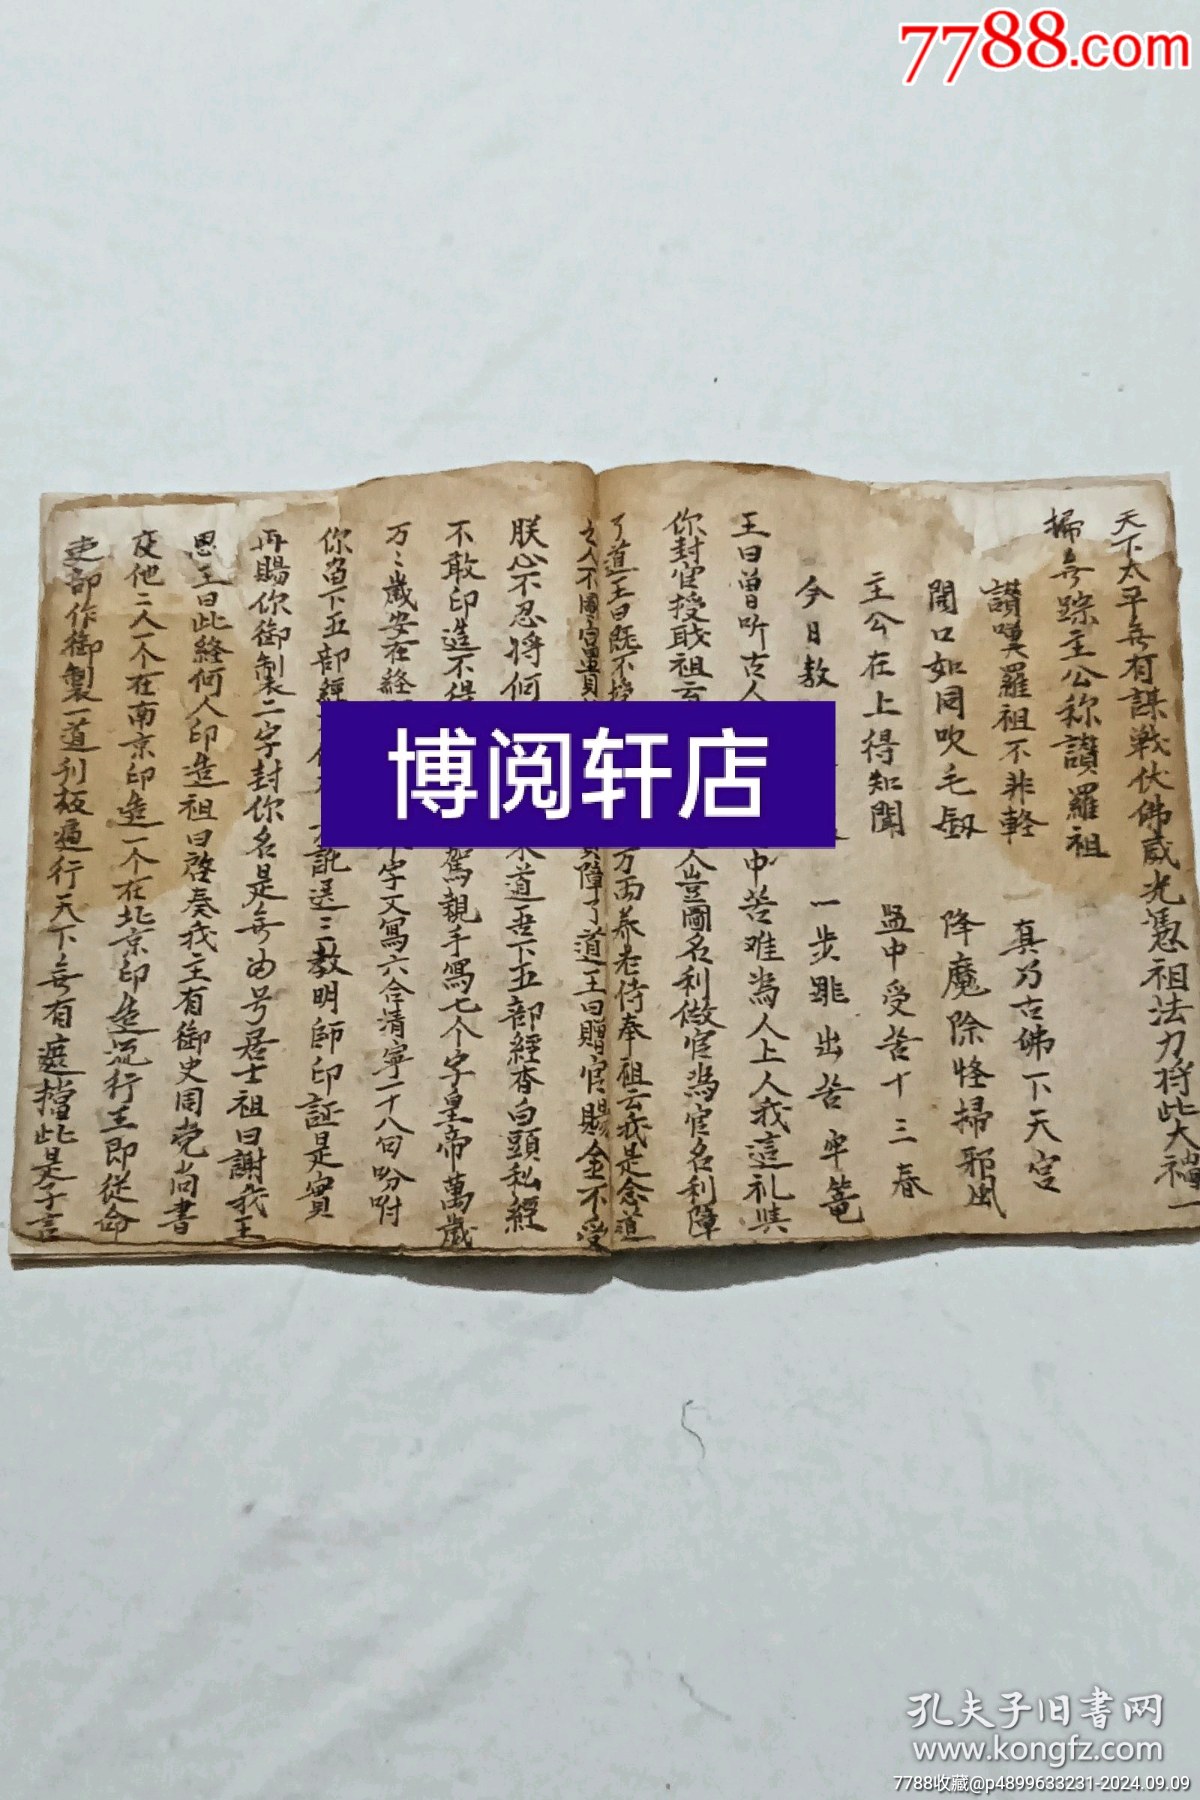 7788.com
天下太平無有謀戦伏佛威光憑祖法力将此大禍一
掃無踪主公称讃羅祖
讃嘆羅祖不非軽 真乃古佛下天宮
開口如同吹毛劔 降魔除怪掃邪風
主公在上得知聞 监中受苦十三春
今日敖 一步跳出苦牢篭
王曰曽听古人 中苦难為人上人我這礼
你封官授職祖言 人豈圖名利做官為官名利障
了道王曰既不 万両养老侍奉祖云我是念道
之人不圖富貴 障了道王曰贈官賜金不受
朕心不忍将何 道吾下五部經杳白頭私經
不敢印造不得 駕親手寫七个字皇帝萬歳
万〻歳安在経 字文寫六合清寧一十八句吩咐
你留下五部經 託送三教明師印証是實
再賜你御製二字封你名是無為号居士祖曰謝我王
恩王曰此経何人印造祖曰啓奏我主有御史周党尚書
度他二人一个在南京印造一个在北京印造流行王即從命
吏部作御製一道刋板遍行天下無有遮擋此是予言
博阅轩店
孔夫子旧书网
www.kongfz.com
7788收藏@p4899633231-2024.09.09